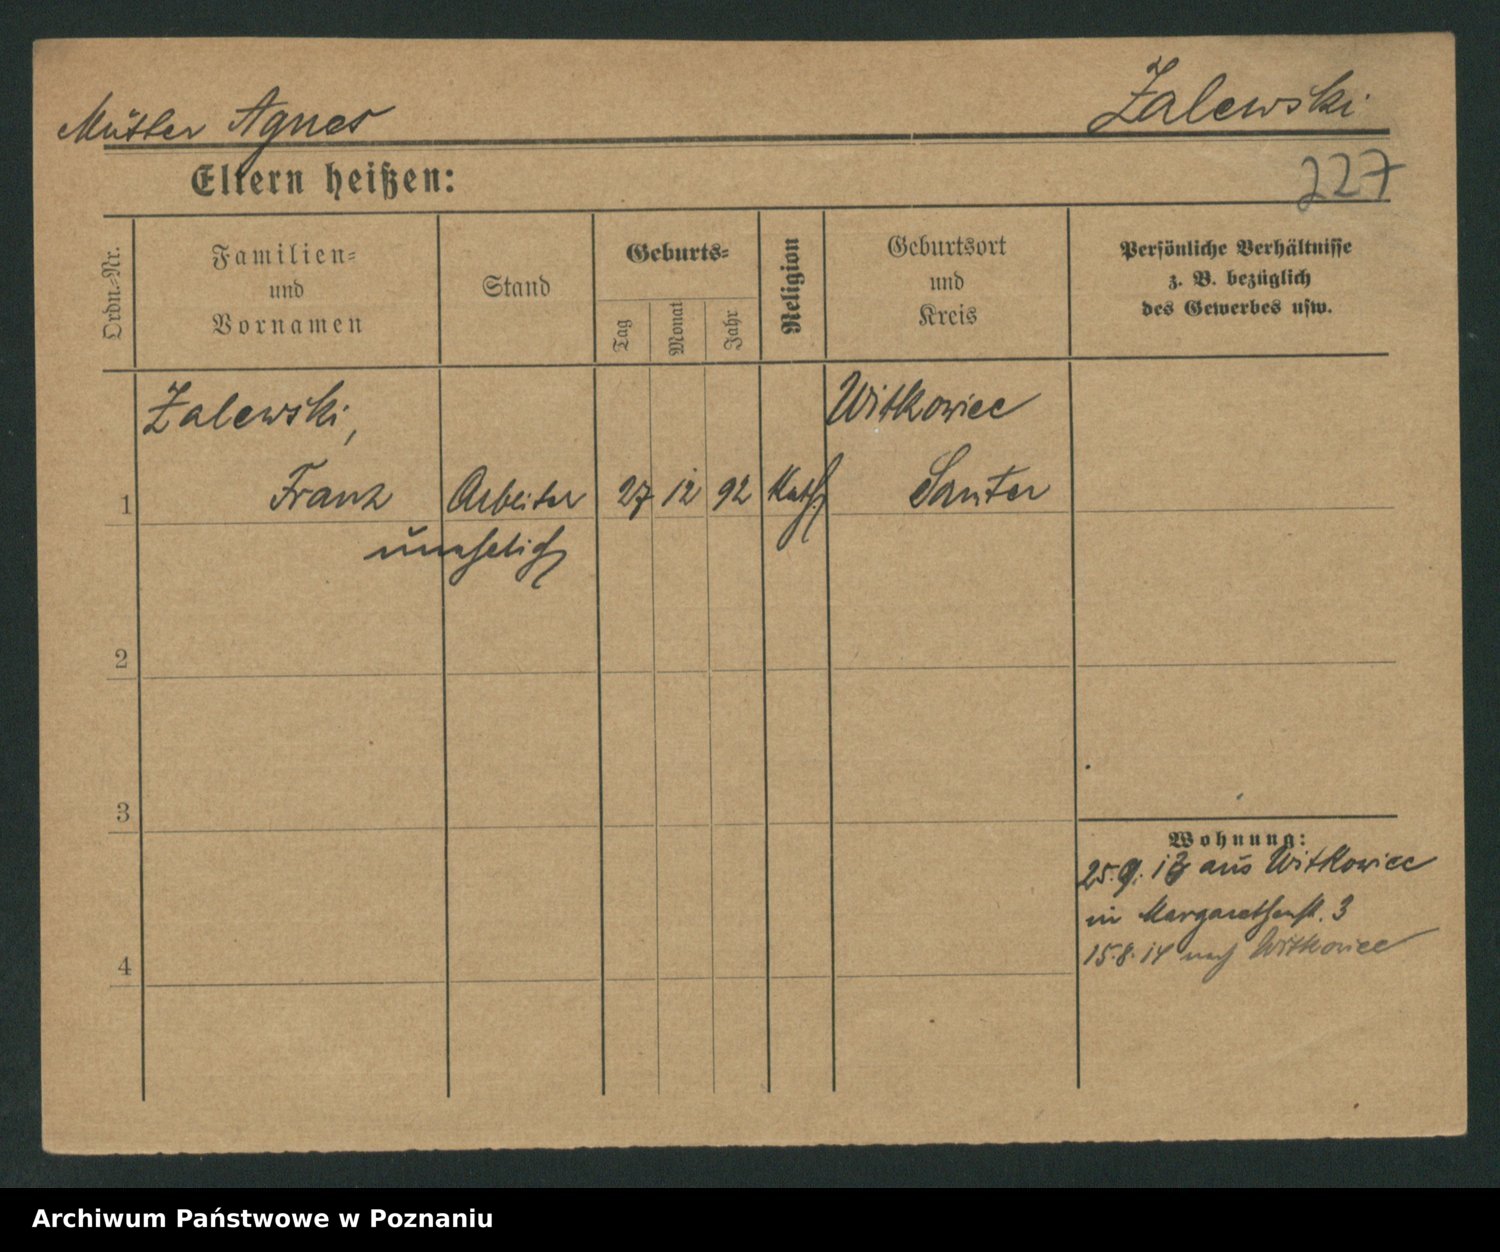 Mutter Agnes
Zalewski
Eltern heißen:
227
Ordn.-Nr.
Familien-
und
Vornamen
Stand
Geburts-
Tag
Monat
Jahr
Religion
Geburtsort
und
Kreis
Persönliche Verhältnisse
z. B. bezüglich
des Gewerbes usw.
Zalewski,
Witkowice
1 Franz Arbeiter 27 12 92 Kath. Samter
unehelich
2
3
Wohnung:
25.9.13 aus Witkowice
in Margarethenst. 3
15.8.14 nach Witkowice
4
Archiwum Państwowe w Poznaniu